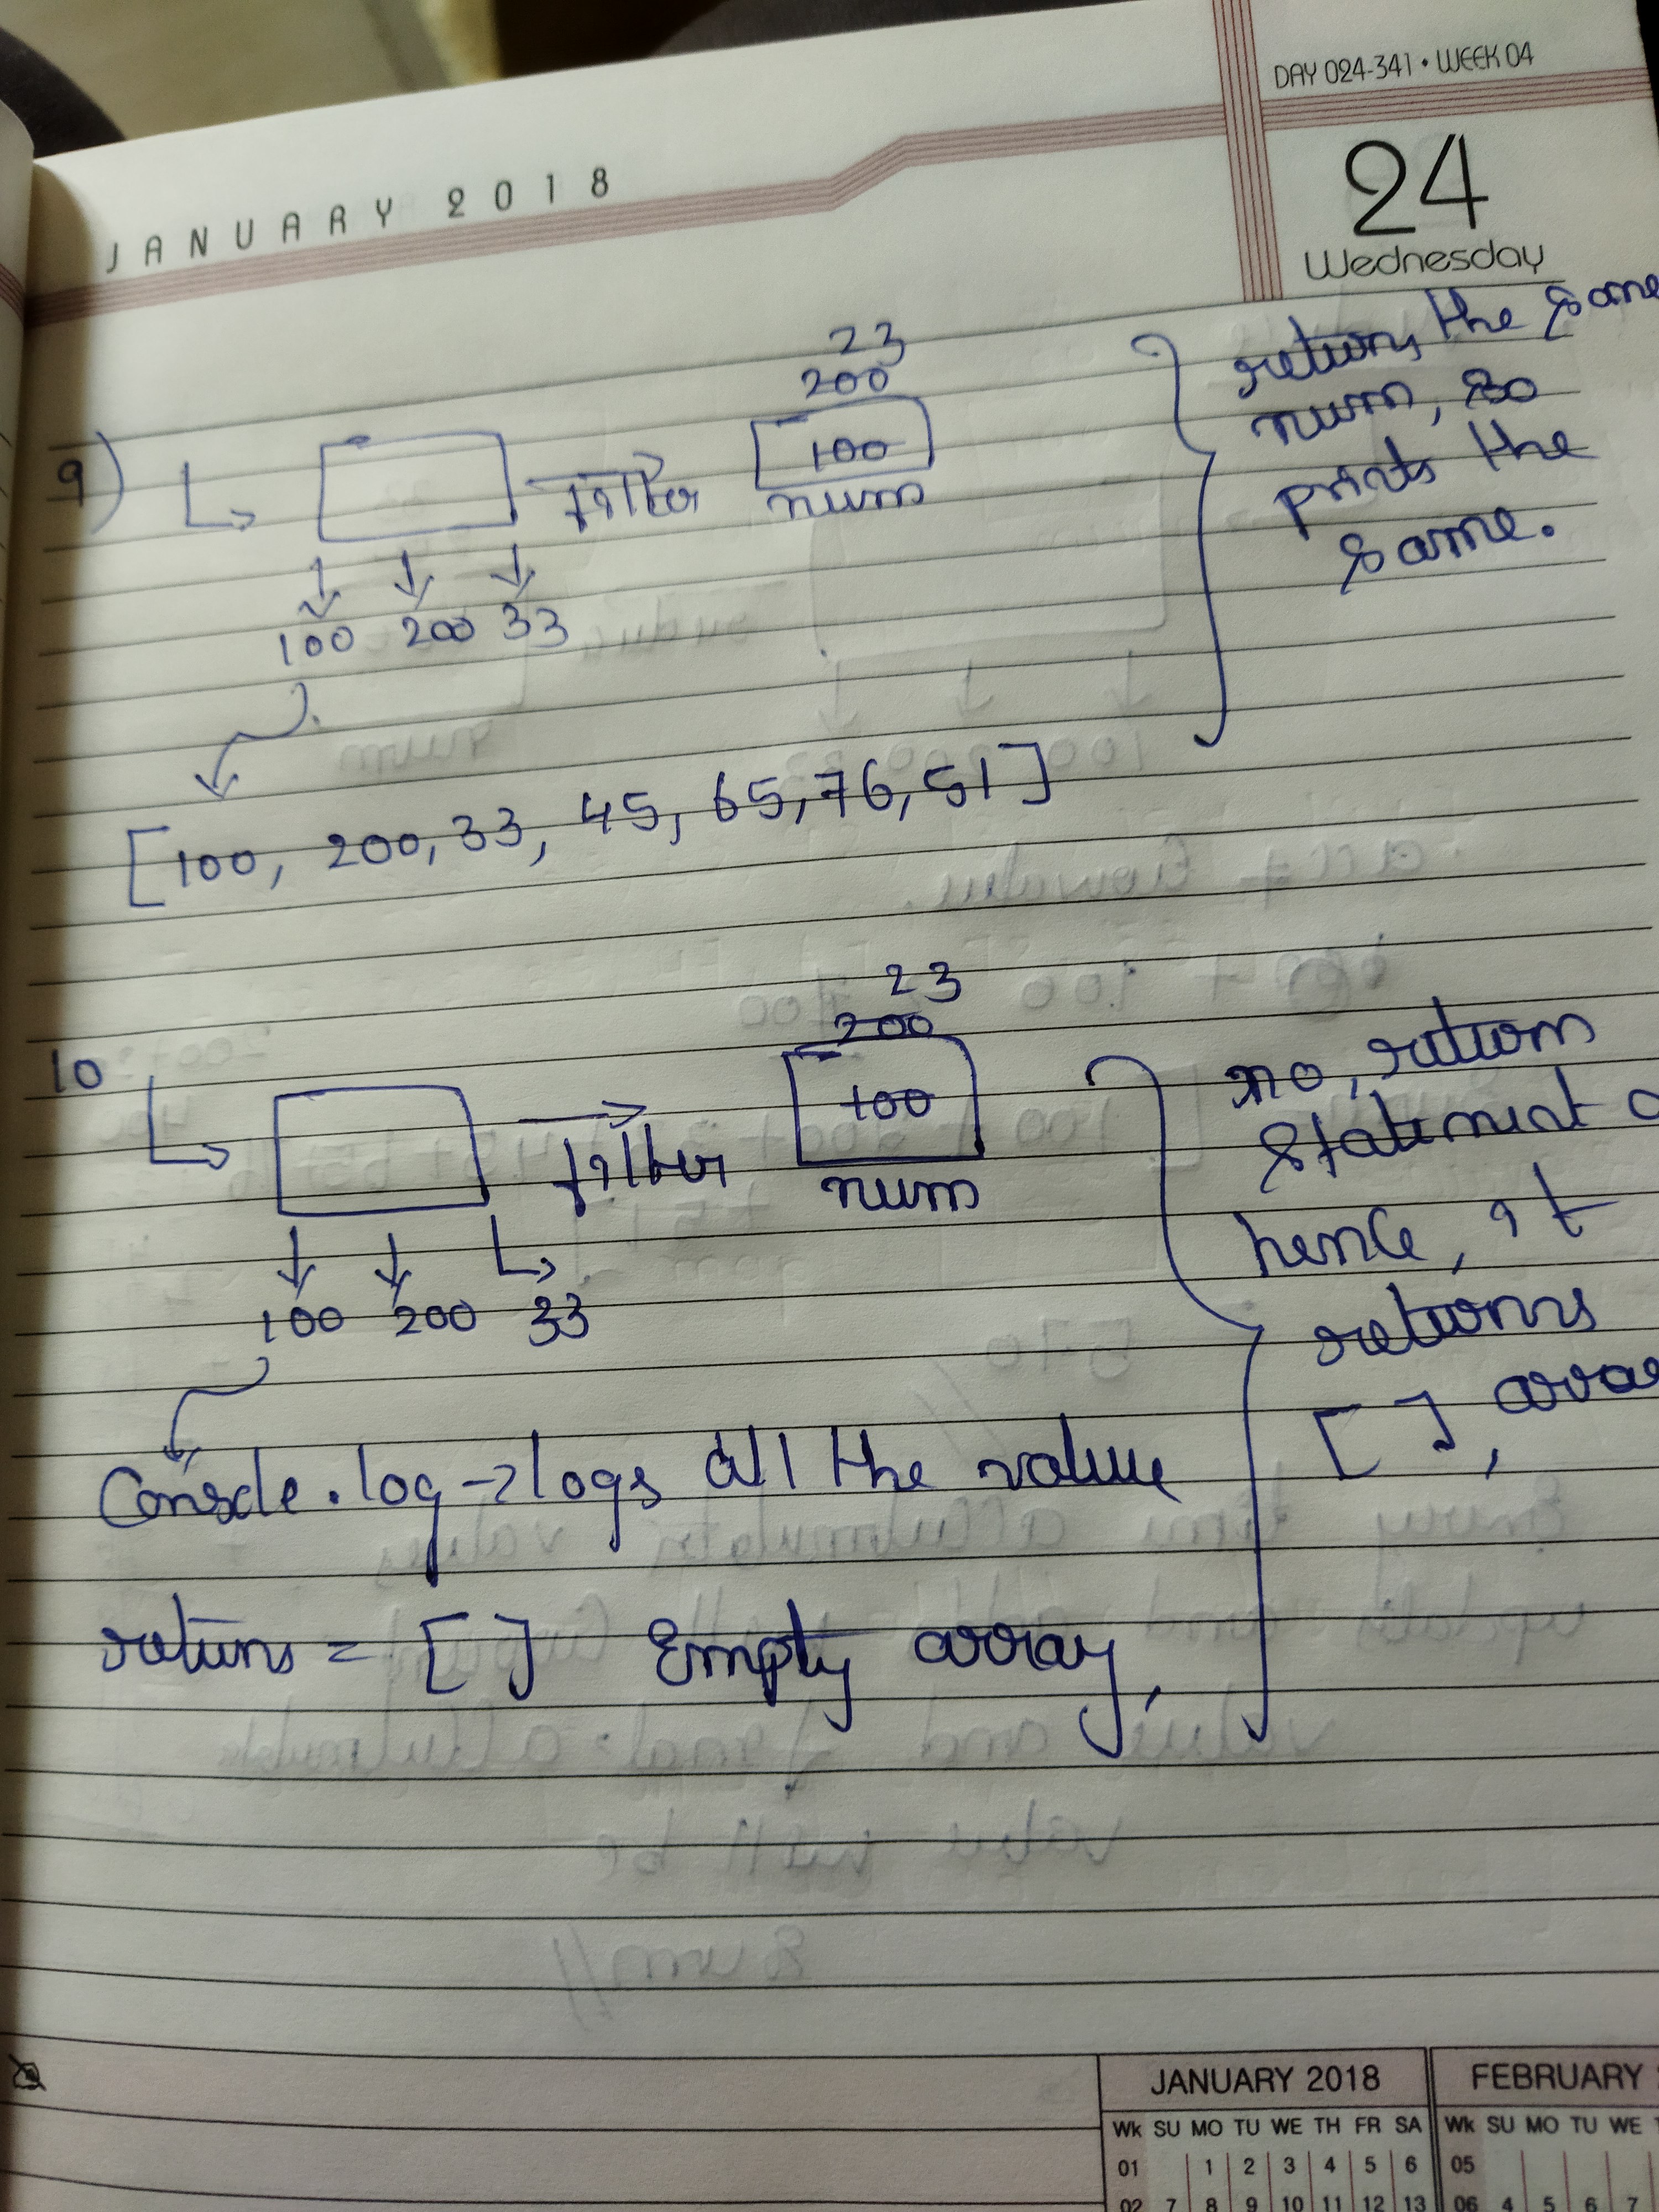 DAY 024-341 • WEEK 04
JANUARY 2018
24
Wednesday
9)
23
200
100
num
filter
100 200 33
[100, 200, 33, 45, 65, 76, 51]
returns the same
num, so
prints the
same.
10
23
200
100
num
filter
100 200 33
Console.log -> logs all the value
returns = [ ] Empty array,
no, return
Statement
hence, it
returns
[ ],
JANUARY 2018
Wk SU MO TU WE TH FR SA
01 1 2 3 4 5 6
02 7 8 9 10 11 12 13
FEBRUARY
Wk SU MO TU WE
05
06 4 5 6 7